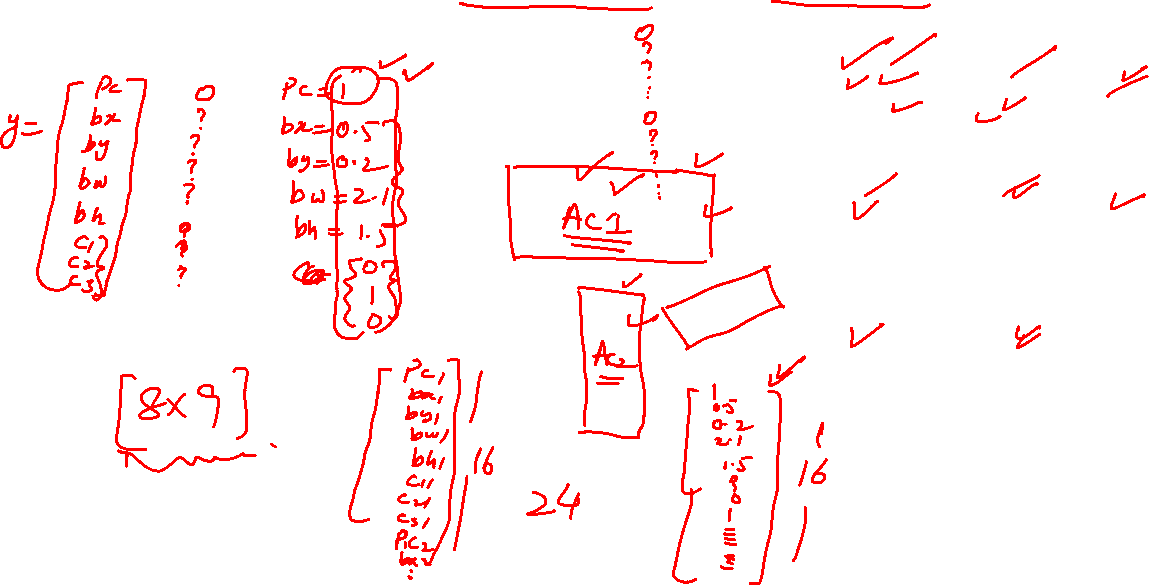 y=
Pc
bx
by
bw
bh
C1
C2
C3
0
?
?
?
?
0
?
?
Pc=1
bx=0.5
by=0.2
bw=2.1
bh=1.5
0
1
0
0
?
?
...
0
?
?
...
AC1
AC2
[8x9]
Pc1
bx1
by1
bw1
bh1
C11
C21
C31
Pc2
bx2
⋮
16
24
1
0.5
0.2
2.1
1.5
0
0
1
16